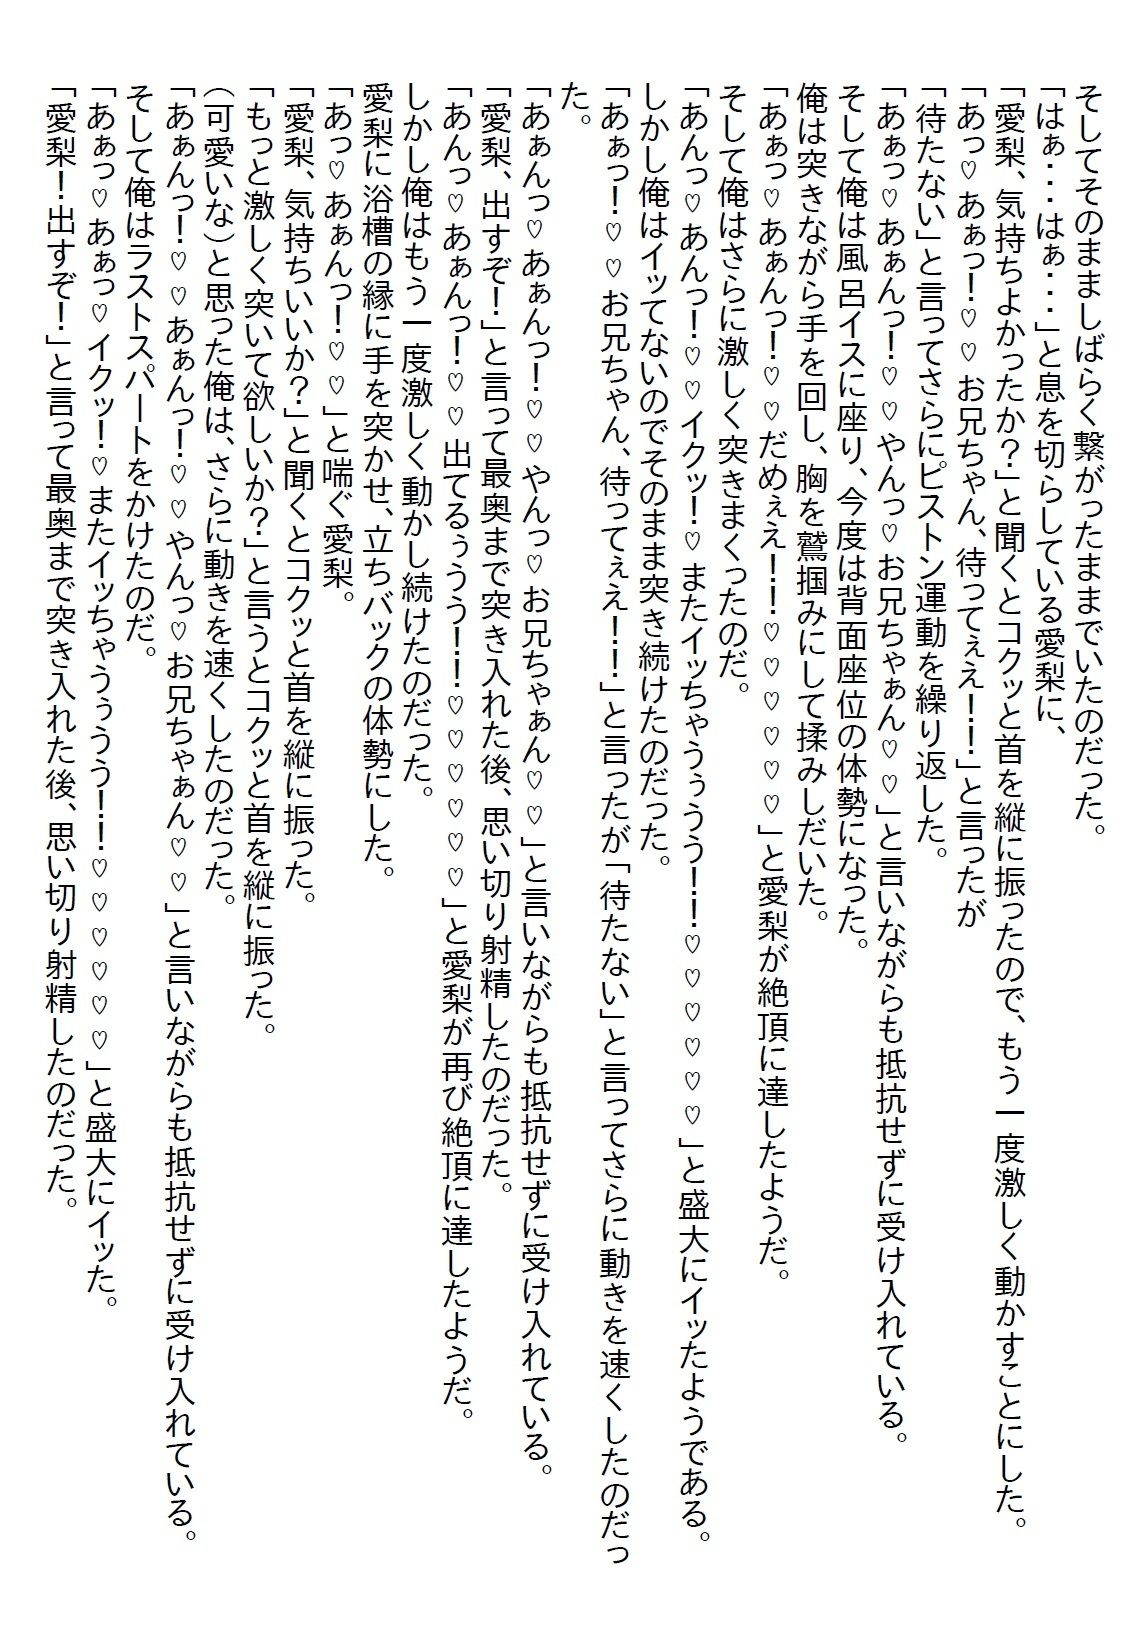 そしてそのまましばらく繋がったままでいたのだった。
「はぁ・・・はぁ・・・」と息を切らしている愛梨に、
「愛梨、気持ちよかったか？」と聞くとコクッと首を縦に振ったので、もう一度激しく動かすことにした。
「あっ♡あぁっ！♡♡お兄ちゃん、待ってぇえ！！」と言ったが
「待たない」と言ってさらにピストン運動を繰り返した。
「あぁっ♡あぁんっ！♡♡やんっ♡お兄ちゃぁん♡♡」と言いながらも抵抗せずに受け入れている。
そして俺は風呂イスに座り、今度は背面座位の体勢になった。
俺は突きながら手を回し、胸を鷲掴みにして揉みしだいた。
「あぁっ♡あぁんっ！♡♡だめぇえ！！♡♡♡♡♡♡」と愛梨が絶頂に達したようだ。
そして俺はさらに激しく突きまくったのだ。
「あんっ♡あんっ！♡♡イクッ！♡またイッちゃうぅうう！！♡♡♡♡♡♡」と盛大にイッたようである。
しかし俺はイッてないのでそのまま突き続けたのだった。
「あぁっ！♡♡お兄ちゃん、待ってぇえ！！」と言ったが「待たない」と言ってさらに動きを速くしたのだっ
た。
「あぁんっ♡あぁんっ！♡♡やんっ♡お兄ちゃぁん♡♡」と言いながらも抵抗せずに受け入れている。
「愛梨、出すぞ！」と言って最奥まで突き入れた後、思い切り射精したのだった。
「あんっ♡あぁんっ！♡♡出てるぅうう！！♡♡♡♡♡♡」と愛梨が再び絶頂に達したようだ。
しかし俺はもう一度激しく動かし続けたのだった。
愛梨に浴槽の縁に手を突かせ、立ちバックの体勢にした。
「あっ♡あぁんっ！♡♡」と喘ぐ愛梨。
「愛梨、気持ちいいか？」と聞くとコクッと首を縦に振った。
「もっと激しく突いて欲しいか？」と言うとコクッと首を縦に振った。
（可愛いな）と思った俺は、さらに動きを速くしたのだった。
「あぁんっ！♡♡あぁんっ！♡♡やんっ♡お兄ちゃぁん♡♡」と言いながらも抵抗せずに受け入れている。
そして俺はラストスパートをかけたのだ。
「あぁっ♡あぁっ♡イクッ！♡またイッちゃうぅうう！！♡♡♡♡♡♡」と盛大にイッた。
「愛梨！出すぞ！」と言って最奥まで突き入れた後、思い切り射精したのだった。